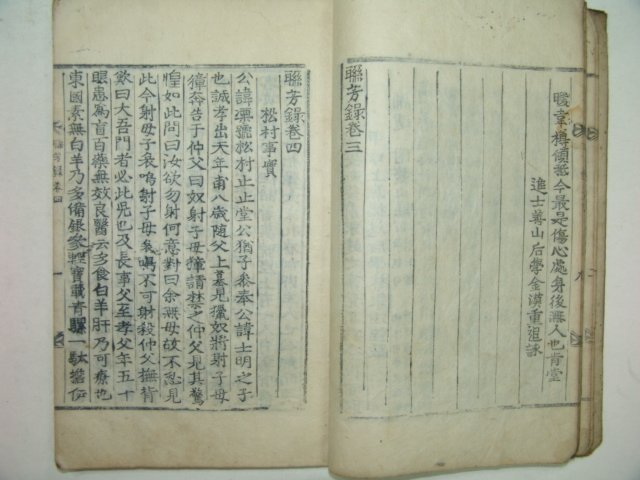 暖韋樽領拪今最是傷心處身後無人也肯堂
進士善山后學金漢重追詠
聯芳錄卷三
聯芳錄卷四
松村事實
公諱溧號松村止止堂公猶子叅奉公諱士明之子
也誠孝出天年甫八歲隨父上墓見獵奴將射子母
獐奔告于仲父曰奴射子母獐請禁之仲父見其驚
惶如此問曰汝欲勿射何意對曰余無母故不忍見
此今射母子哀嗚射子母哀嗚不可射殺仲父撫背
歎曰大吾門者必此兒也及長事父至孝父年五十
眼患爲盲百藥無效良醫云多食白羊肝乃可療也
東國素無白羊乃多備銀蔘輕寶載青騾一馱擔